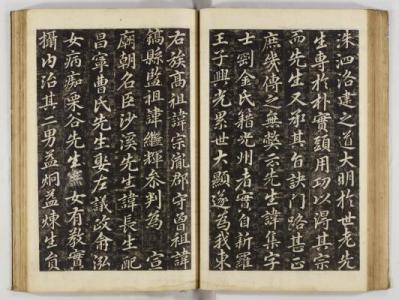 洙泗洛建之道大明於世老先
生專於朴實頭用功以得其宗
而先生又承其旨訣門路甚正
庶幾傳之無弊云先生諱集字
士剛金氏籍光州者實自新羅
王子興光累世大顯遂爲我東
右族高祖諱宗胤郡守曾祖諱
鎬縣監祖諱繼輝參判爲 宣
廟朝名臣沙溪先生諱長生配
昌寧曹氏先生娶左議政兪泓
女病痴栗谷先生 女有敎實
攝內治其二男益炯益煉生員